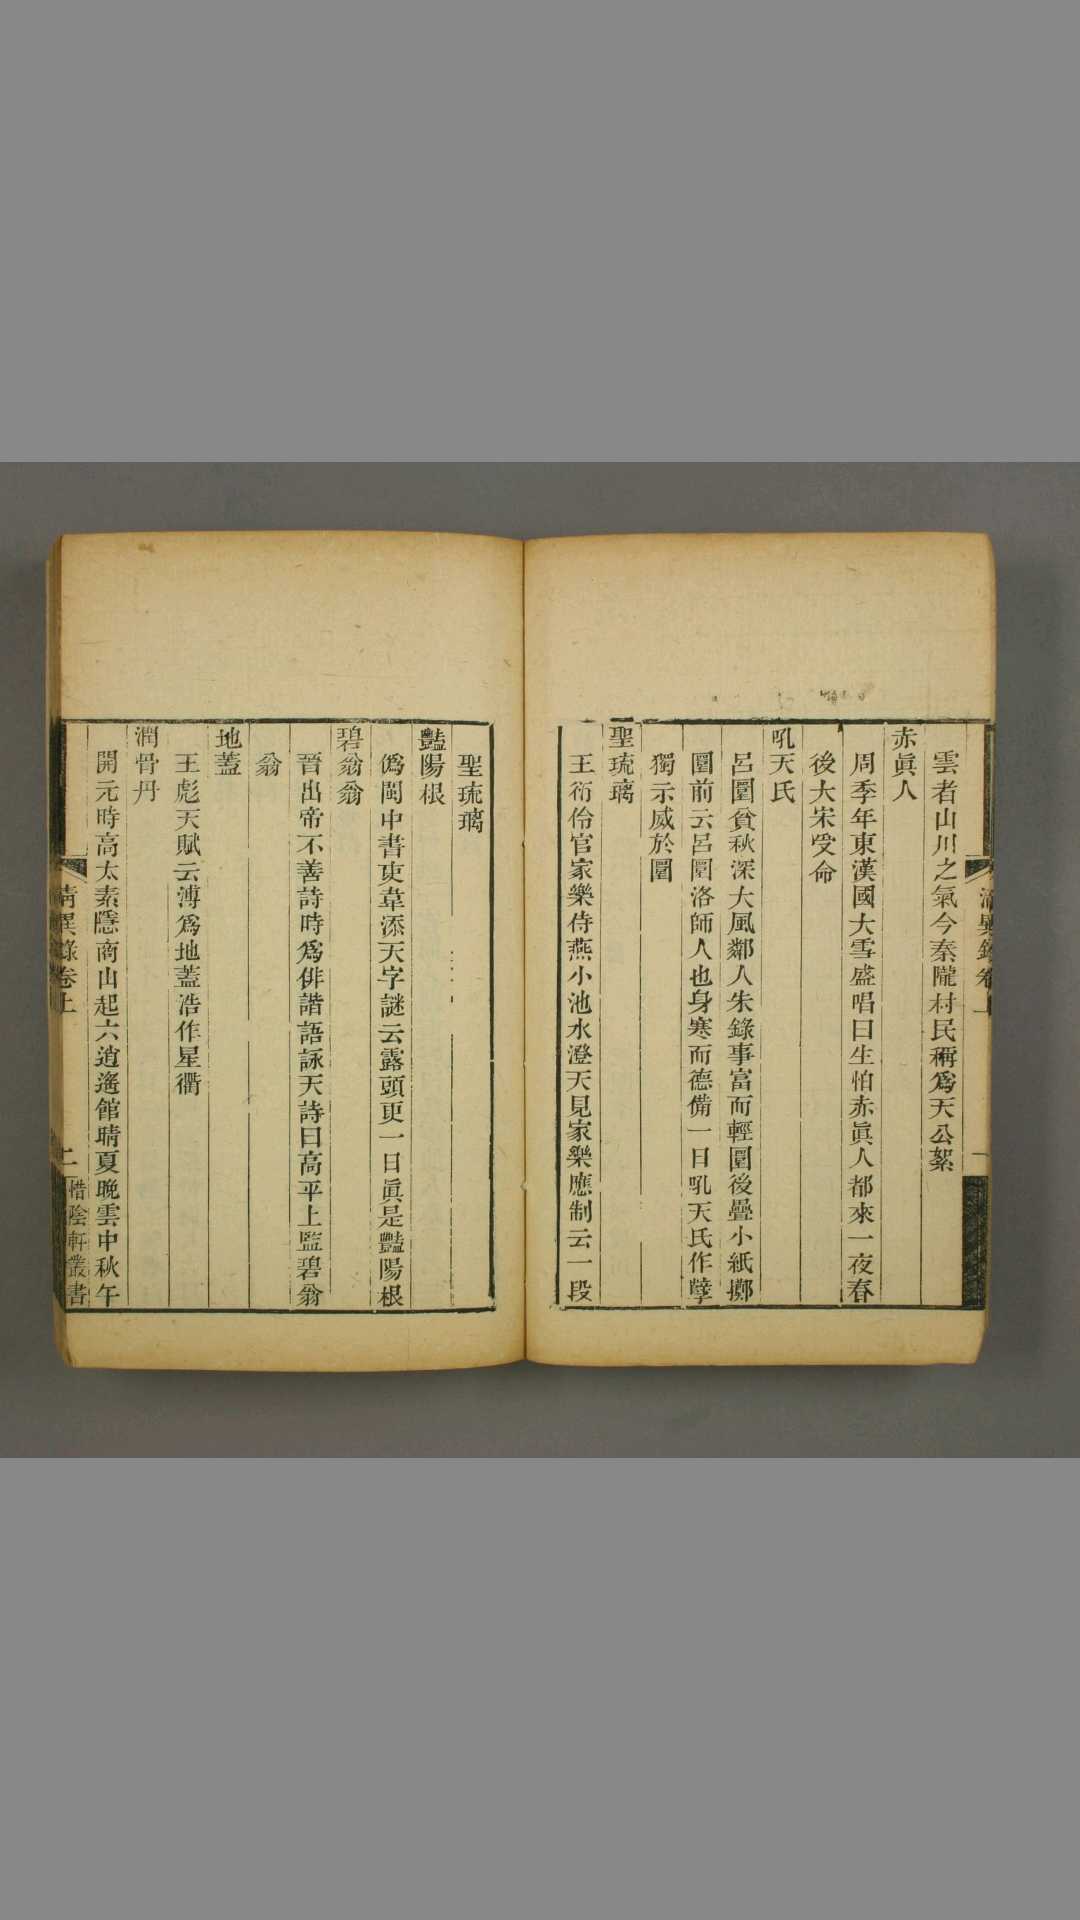 清異錄卷上
一
雲者山川之氣今秦隴村民稱爲天公絮
赤眞人
周季年東漢國大雪盛唱曰生怕赤眞人都來一夜春
後大宋受命
吼天氏
呂圜貧秋深大風鄰人朱錄事富而輕圜後疊小紙擲
圜前云呂圜洛師人也身寒而德備一日吼天氏作孽
獨示威於圜
聖琉璃
王衍伶官家樂侍燕小池水澄天見家樂應制云一段
聖琉璃
豔陽根
僞閩中書吏韋添天字謎云露頭更一日眞是豔陽根
碧翁翁
晉出帝不善詩時爲俳諧語詠天詩曰高平上監碧翁
翁
地蓋
王彪天賦云溥爲地蓋浩作星衢
潤骨丹
開元時高太素隱商山起六逍遙館晴夏晚雲中秋午
清異錄卷上
二
惜陰軒叢書